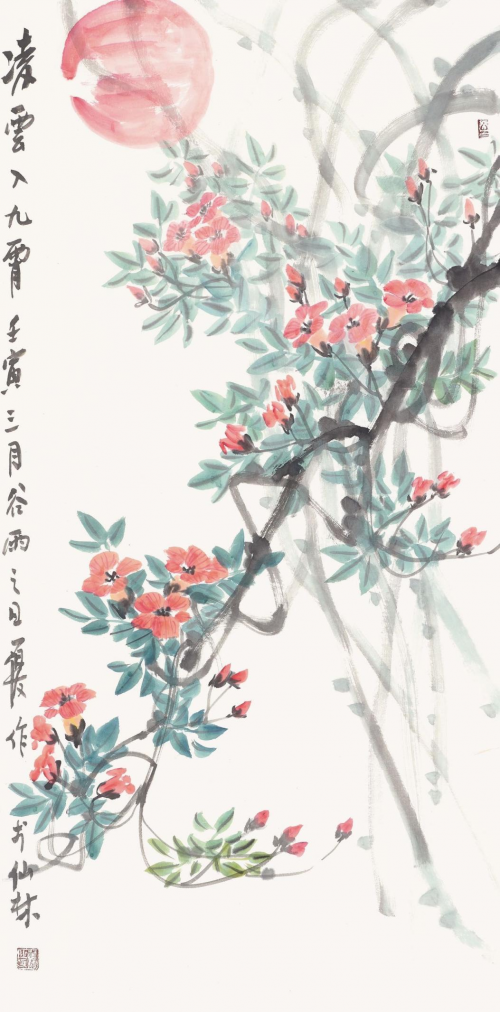 凌雲入九霄 壬寅三月谷雨之日夏作於仙林